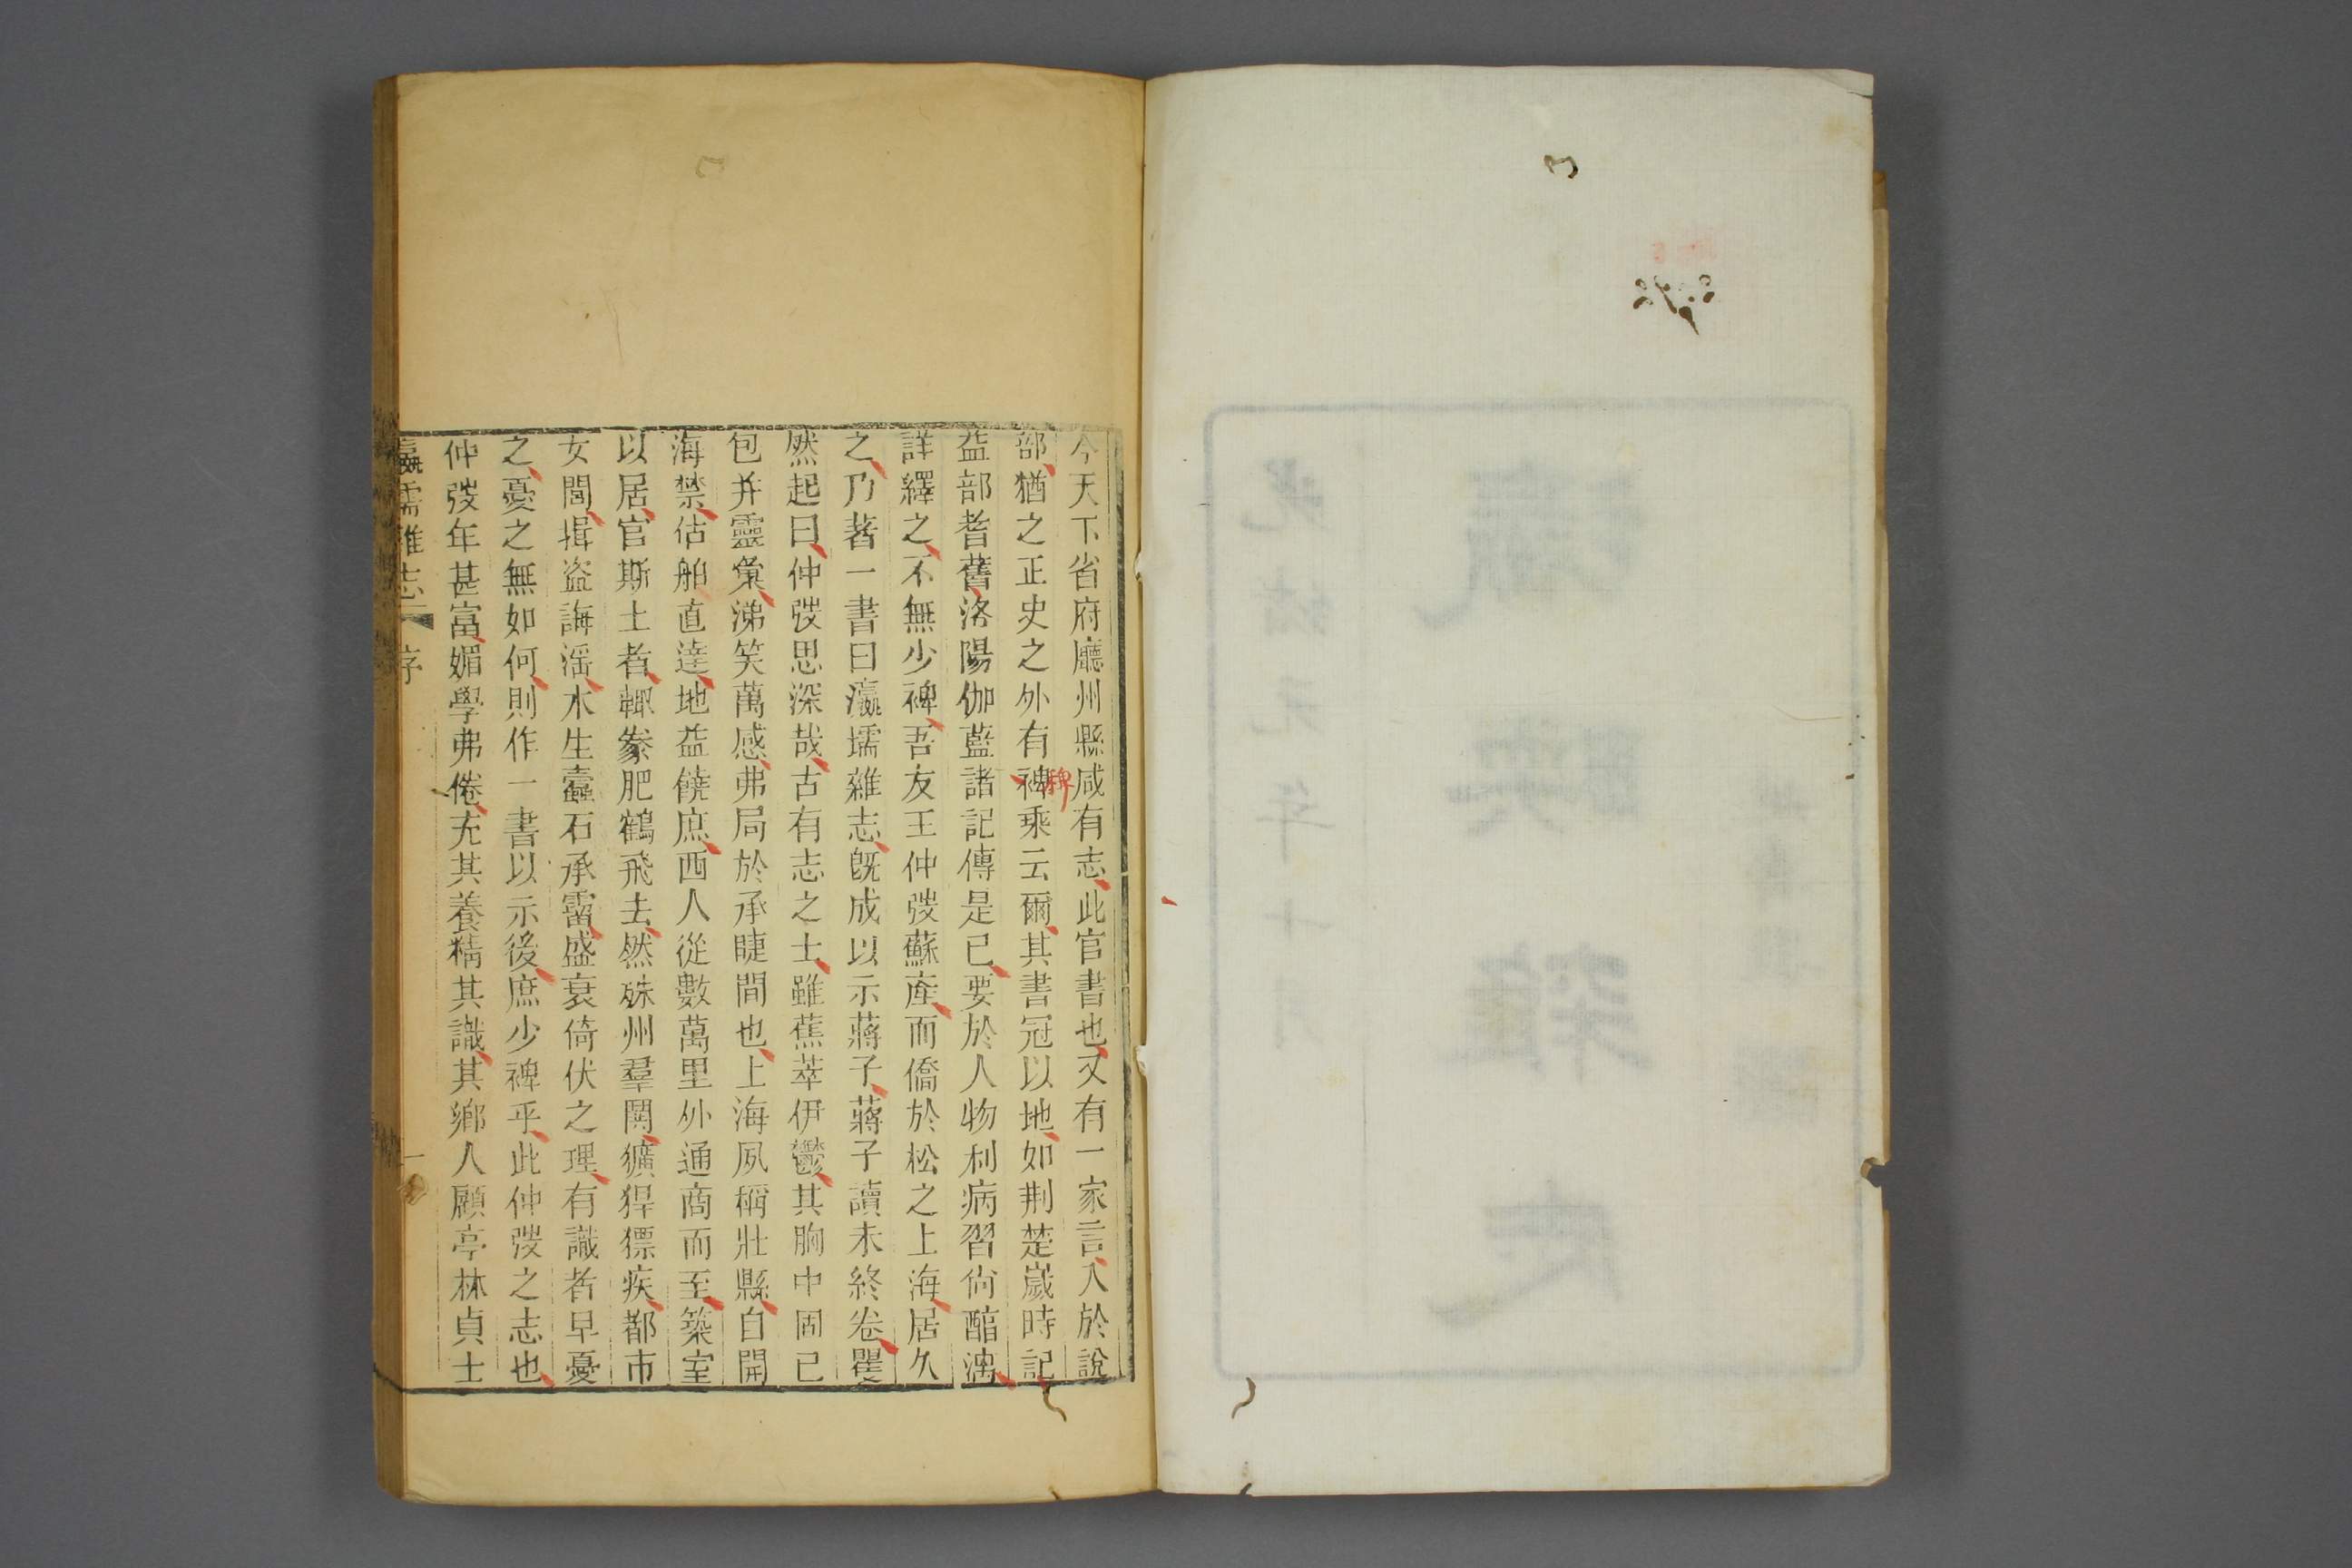 今天下省府廳州縣咸有志此官書也又有一家言入於說
部猶之正史之外有裨乘云爾其書冠以地如荆楚歲時記
稗
益部耆舊洛陽伽藍諸記傳是已要於人物利病習尙醕漓
詳繹之不無少裨吾友王仲弢蘇產而僑於松之上海居久
之乃著一書曰瀛壖雜志既成以示蔣子蔣子讀未終卷瞿
然起曰仲弢思深哉古有志之士雖蕉萃伊鬱其胸中固已
包幷靈彙涕笑萬感弗局於承睫間也上海夙稱壯縣自開
海禁估舶直達地益饒庶西人從數萬里外通商而至築室
以居官斯土者輒豢肥鶴飛去然殊州羣閧獷猂猽疾都市
女閭揖盜誨淫木生蠹石承霤盛衰倚伏之理有識者早憂
之憂之無如何則作一書以示後庶少裨乎此仲弢之志也
仲弢年甚富媚學弗倦充其養精其識其鄉人顧亭林貞士
瀛壖雜志 序 一
瀛壖雜志
光緒元年十